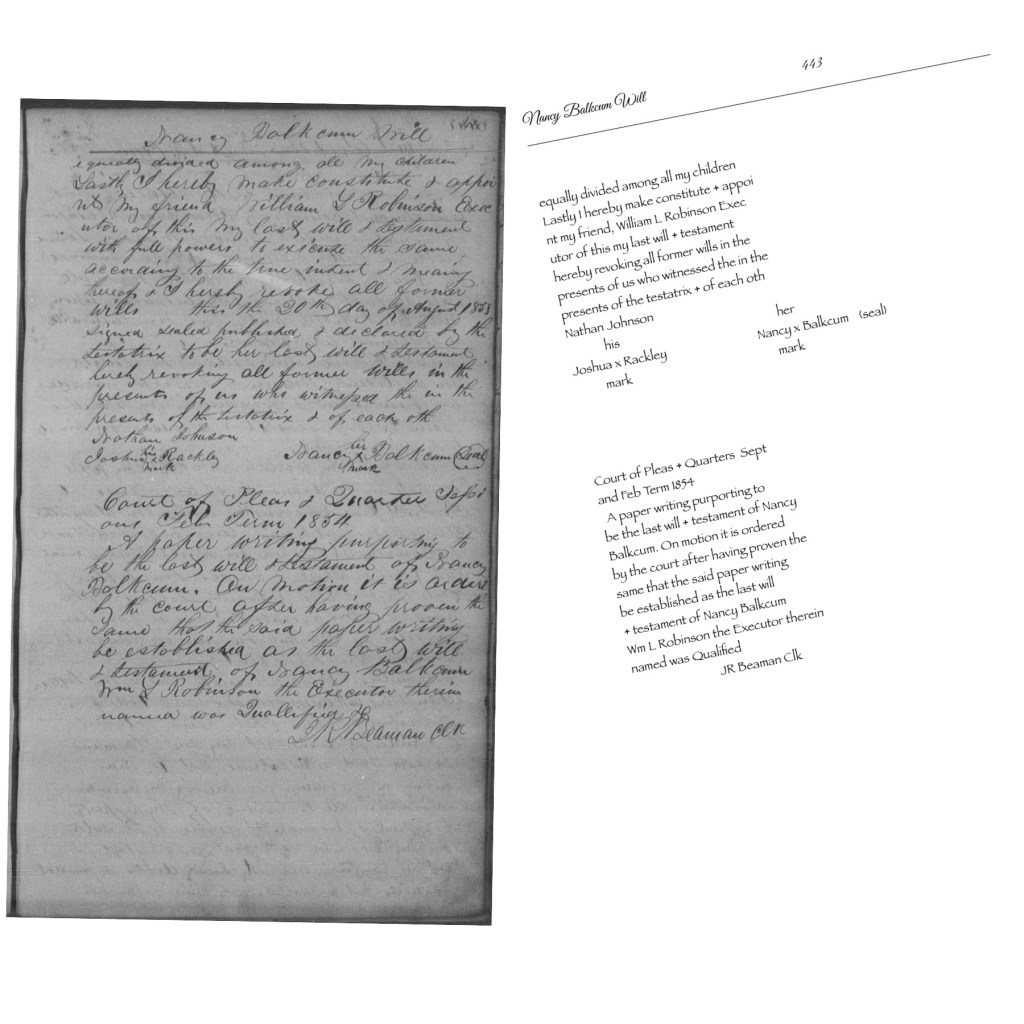 Nancy Balkcum Will
equally divided among all my children
Lastly I hereby make constitute & appoi
nt my friend William L Robinson Exec
utor of this my last will & testament
with full powers to execute the same
according to the true indent & meaning
thereof & I hereby revoke all former
wills this the 20th day of August 1853
Signed sealed published & declared by the
testatrix to be her last will & testament
herely revoking all former wills in the
presents of us who witnessed the in the
presents of the testatrix & of each oth
Nathan Johnson
his
Joshua x Rackley
mark
her
Nancy x Balkcum Seal
mark
Court of Pleas & Quarter Sessi
ons Feb Term 1854
A paper writing purporting to
be the last will & testament of Nancy
Balkcum. On motion it is order
by the court after having proven the
same that the said paper writing
be established as the last will
& testament of Nancy Balkcum
Wm L Robinson the Executor therin
named was Quallified &c
J R Beaman Clk
443
Nancy Balkcum Will
equally divided among all my children
Lastly I hereby make constitute + appoi
nt my friend, William L Robinson Exec
utor of this my last will + testament
hereby revoking all former wills in the
presents of us who witnessed the in the
presents of the testatrix + of each oth
Nathan Johnson
his
Joshua x Rackley
mark
her
Nancy x Balkcum (seal)
mark
Court of Pleas + Quarters Sept
and Feb Term 1854
A paper writing purporting to
be the last will + testament of Nancy
Balkcum. On motion it is ordered
by the court after having proven the
same that the said paper writing
be established as the last will
+ testament of Nancy Balkcum
Wm L Robinson the Executor therein
named was Qualified
JR Beaman Clk